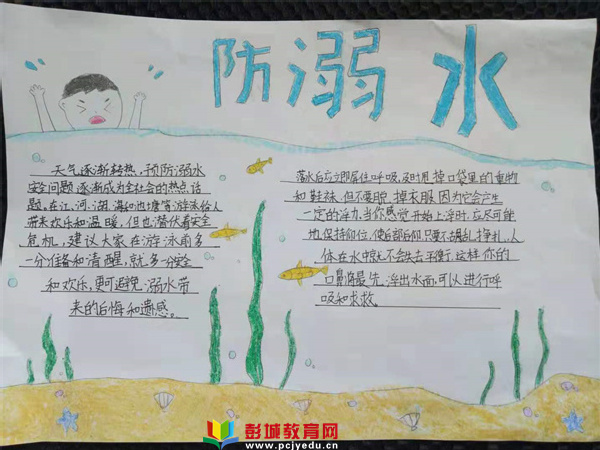 防溺水
天气逐渐转热，预防溺水
安全问题逐渐成为全社会的热点话
题。在江、河、湖、海和池塘等游泳给人
带来欢乐和温暖，但也潜伏着安全
危机，建议大家在游泳前多
一分准备和清醒，就多一分安全
和欢乐，更可避免溺水带
来的后悔和遗憾。
落水后应立即屏住呼吸，及时甩掉口袋里的重物
和鞋袜，但不要脱掉衣服，因为它会产生
一定的浮力，当你感觉开始上浮时，应尽可能
地保持仰位，使后部后仰只要不胡乱挣扎，人
体在水中就不会失去平衡，这样你的
口鼻将最先浮出水面，可以进行呼
吸和求救。
彭城教育网
www.pcjyedu.cn